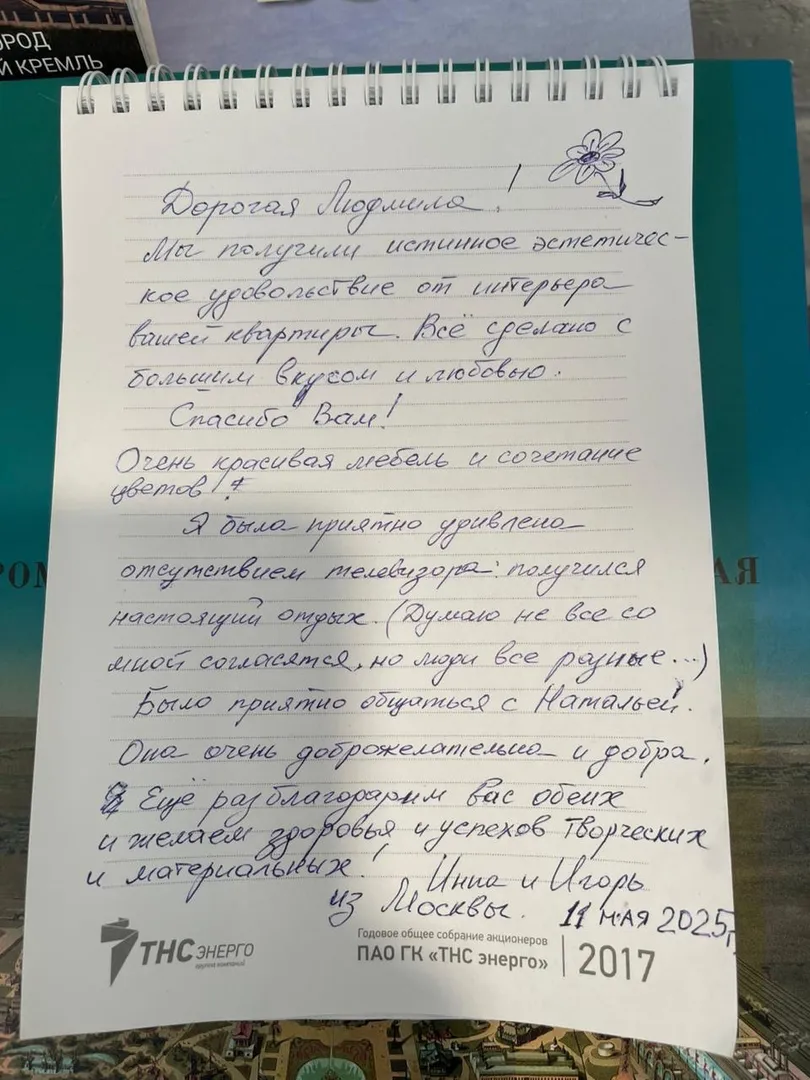 ОРОД
Й КРЕМЛЬ
Дорогая Людмила!
Мы получили истинное эстетичес-
кое удовольствие от интерьера
вашей квартиры. Всё сделано с
большим вкусом и любовью.
Спасибо Вам!
Очень красивая мебель и сочетание
цветов!
Я была приятно удивлена
отсутствием телевизора: получился
настоящий отдых. (Думаю не все со
мной согласятся, но люди все разные...)
Было приятно общаться с Натальей.
Она очень доброжелательна и добра.
Ещё раз благодарим вас обеих
и желаем здоровья и успехов творческих
и материальных!
Инна и Игорь
из Москвы. 11 мая 2025г.
РОМ
АЯ
ТНС ЭНЕРГО
группа компаний
Годовое общее собрание акционеров
ПАО ГК «ТНС энерго»
2017